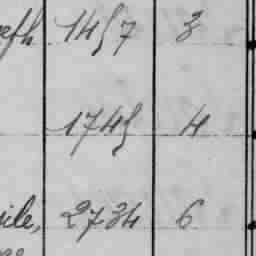 1457 3
1745 4
ile, 2734 6